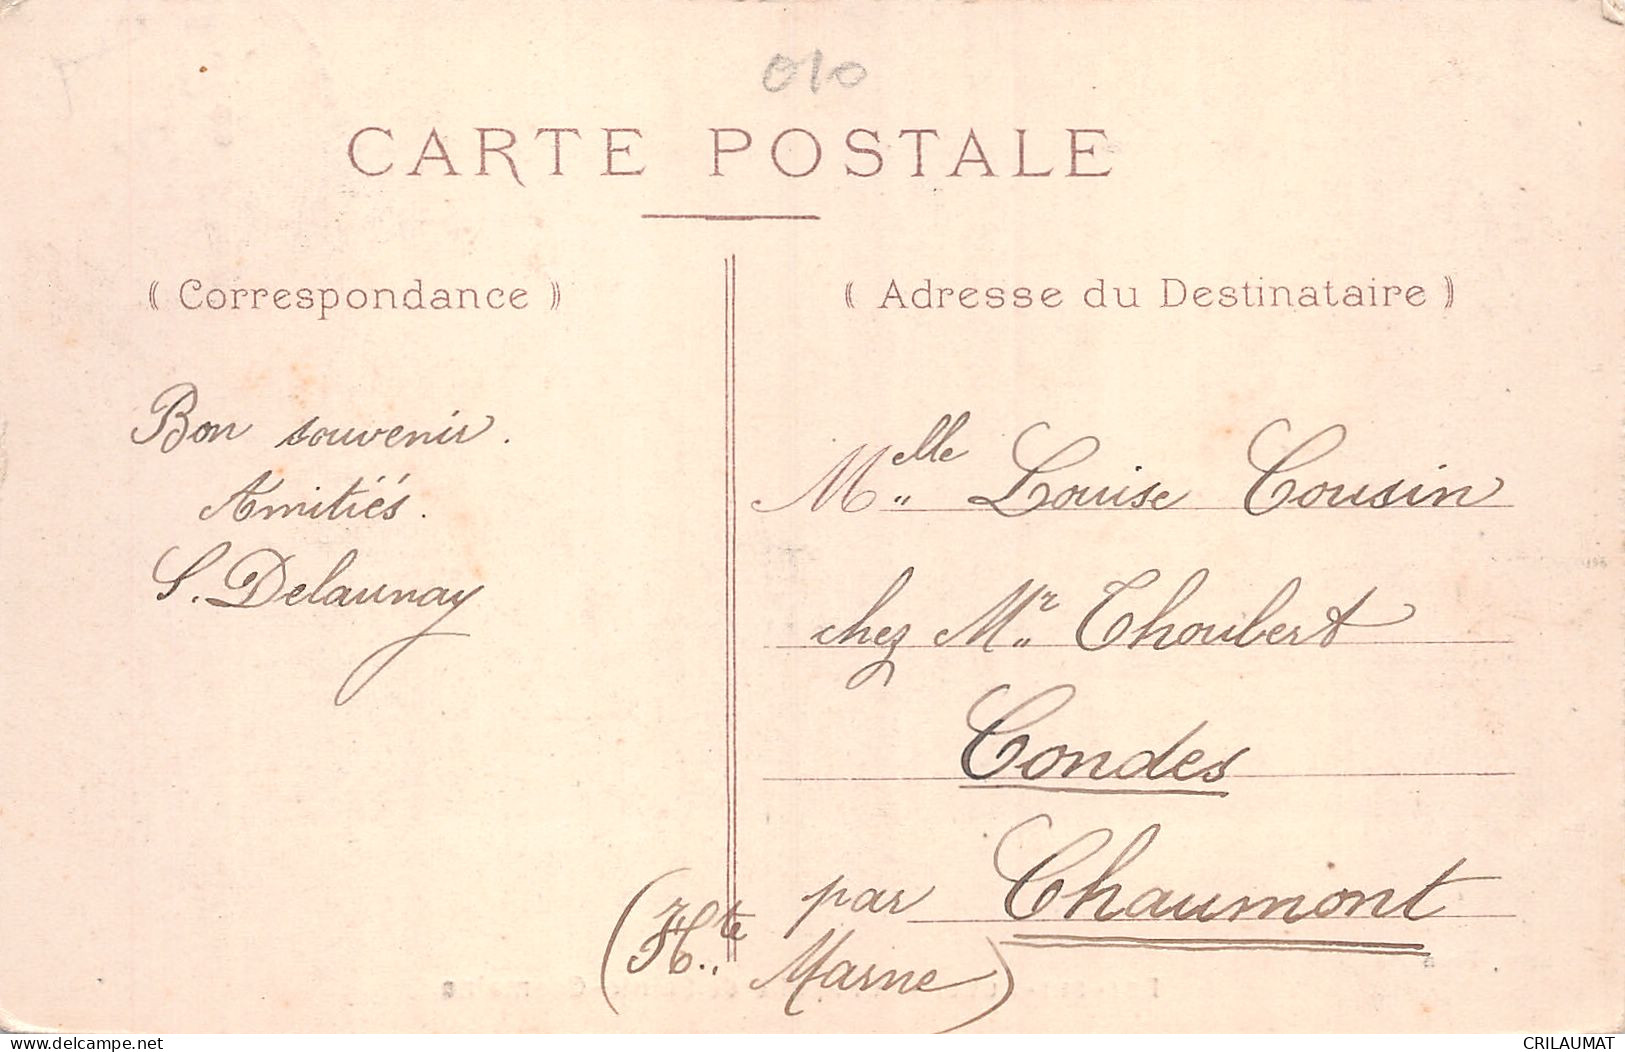 010
CARTE POSTALE
(( Correspondance ))
(( Adresse du Destinataire ))
Bon souvenir.
Amitiés.
S. Delaunay
Melle Louise Cousin
chez Mr Thoubert
Condes
par Chaumont
(Hte Marne)
www.delcampe.net
CRILAUMAT